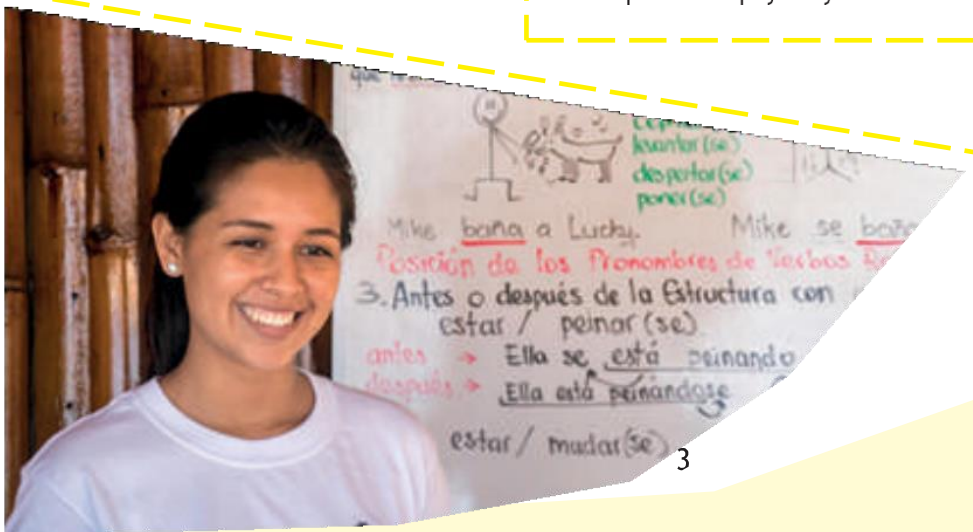 que
levantar(se)
despertar(se)
poner(se)
Mike baña a Lucky. Mike se baña
Posición de los Pronombres de Verbos
3. Antes o después de la Estructura con
estar / peinar(se)
antes → Ella se está peinando
después → Ella está peinándose
estar / mudar(se)
3